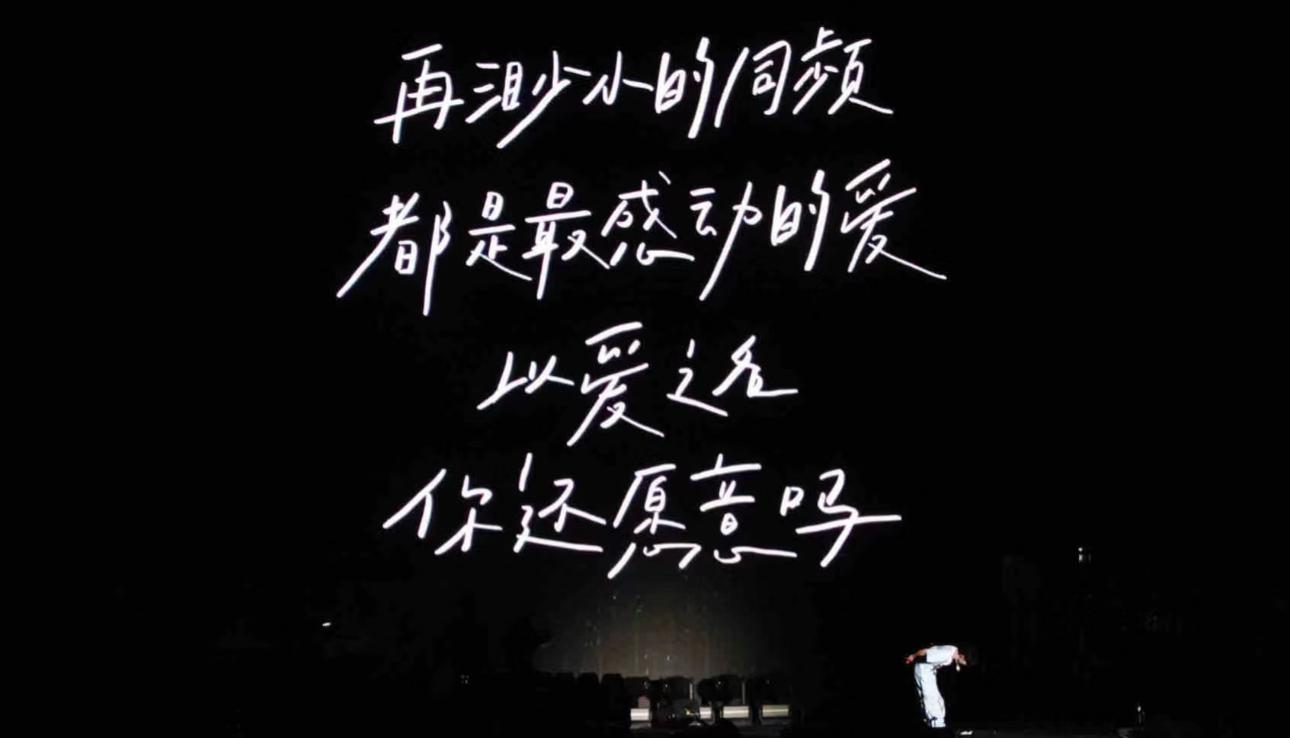 再渺小的同頻
都是最感动的爱
以爱之名
你还愿意吗